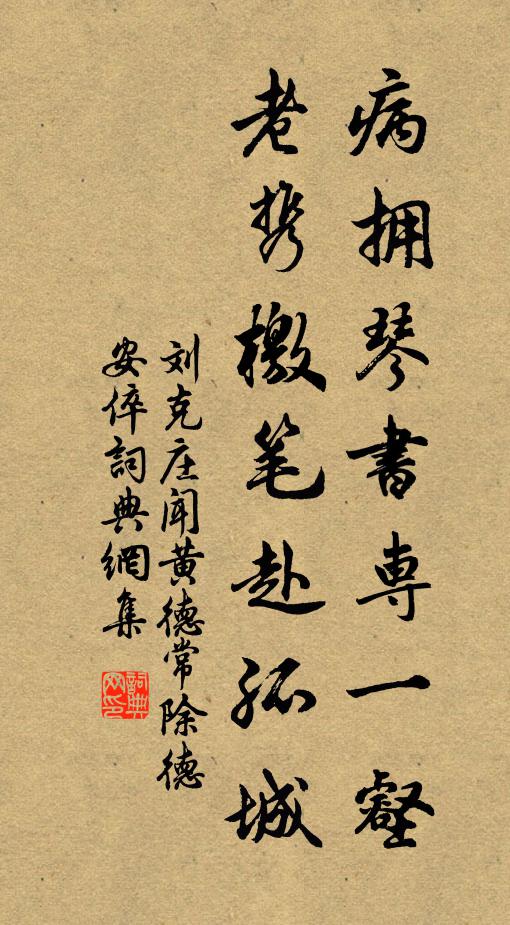 病拥琴書専一壑
老携檄笔赴孤城
刘克庄闻黄德常除德
安倅詞典網集
詞典網印